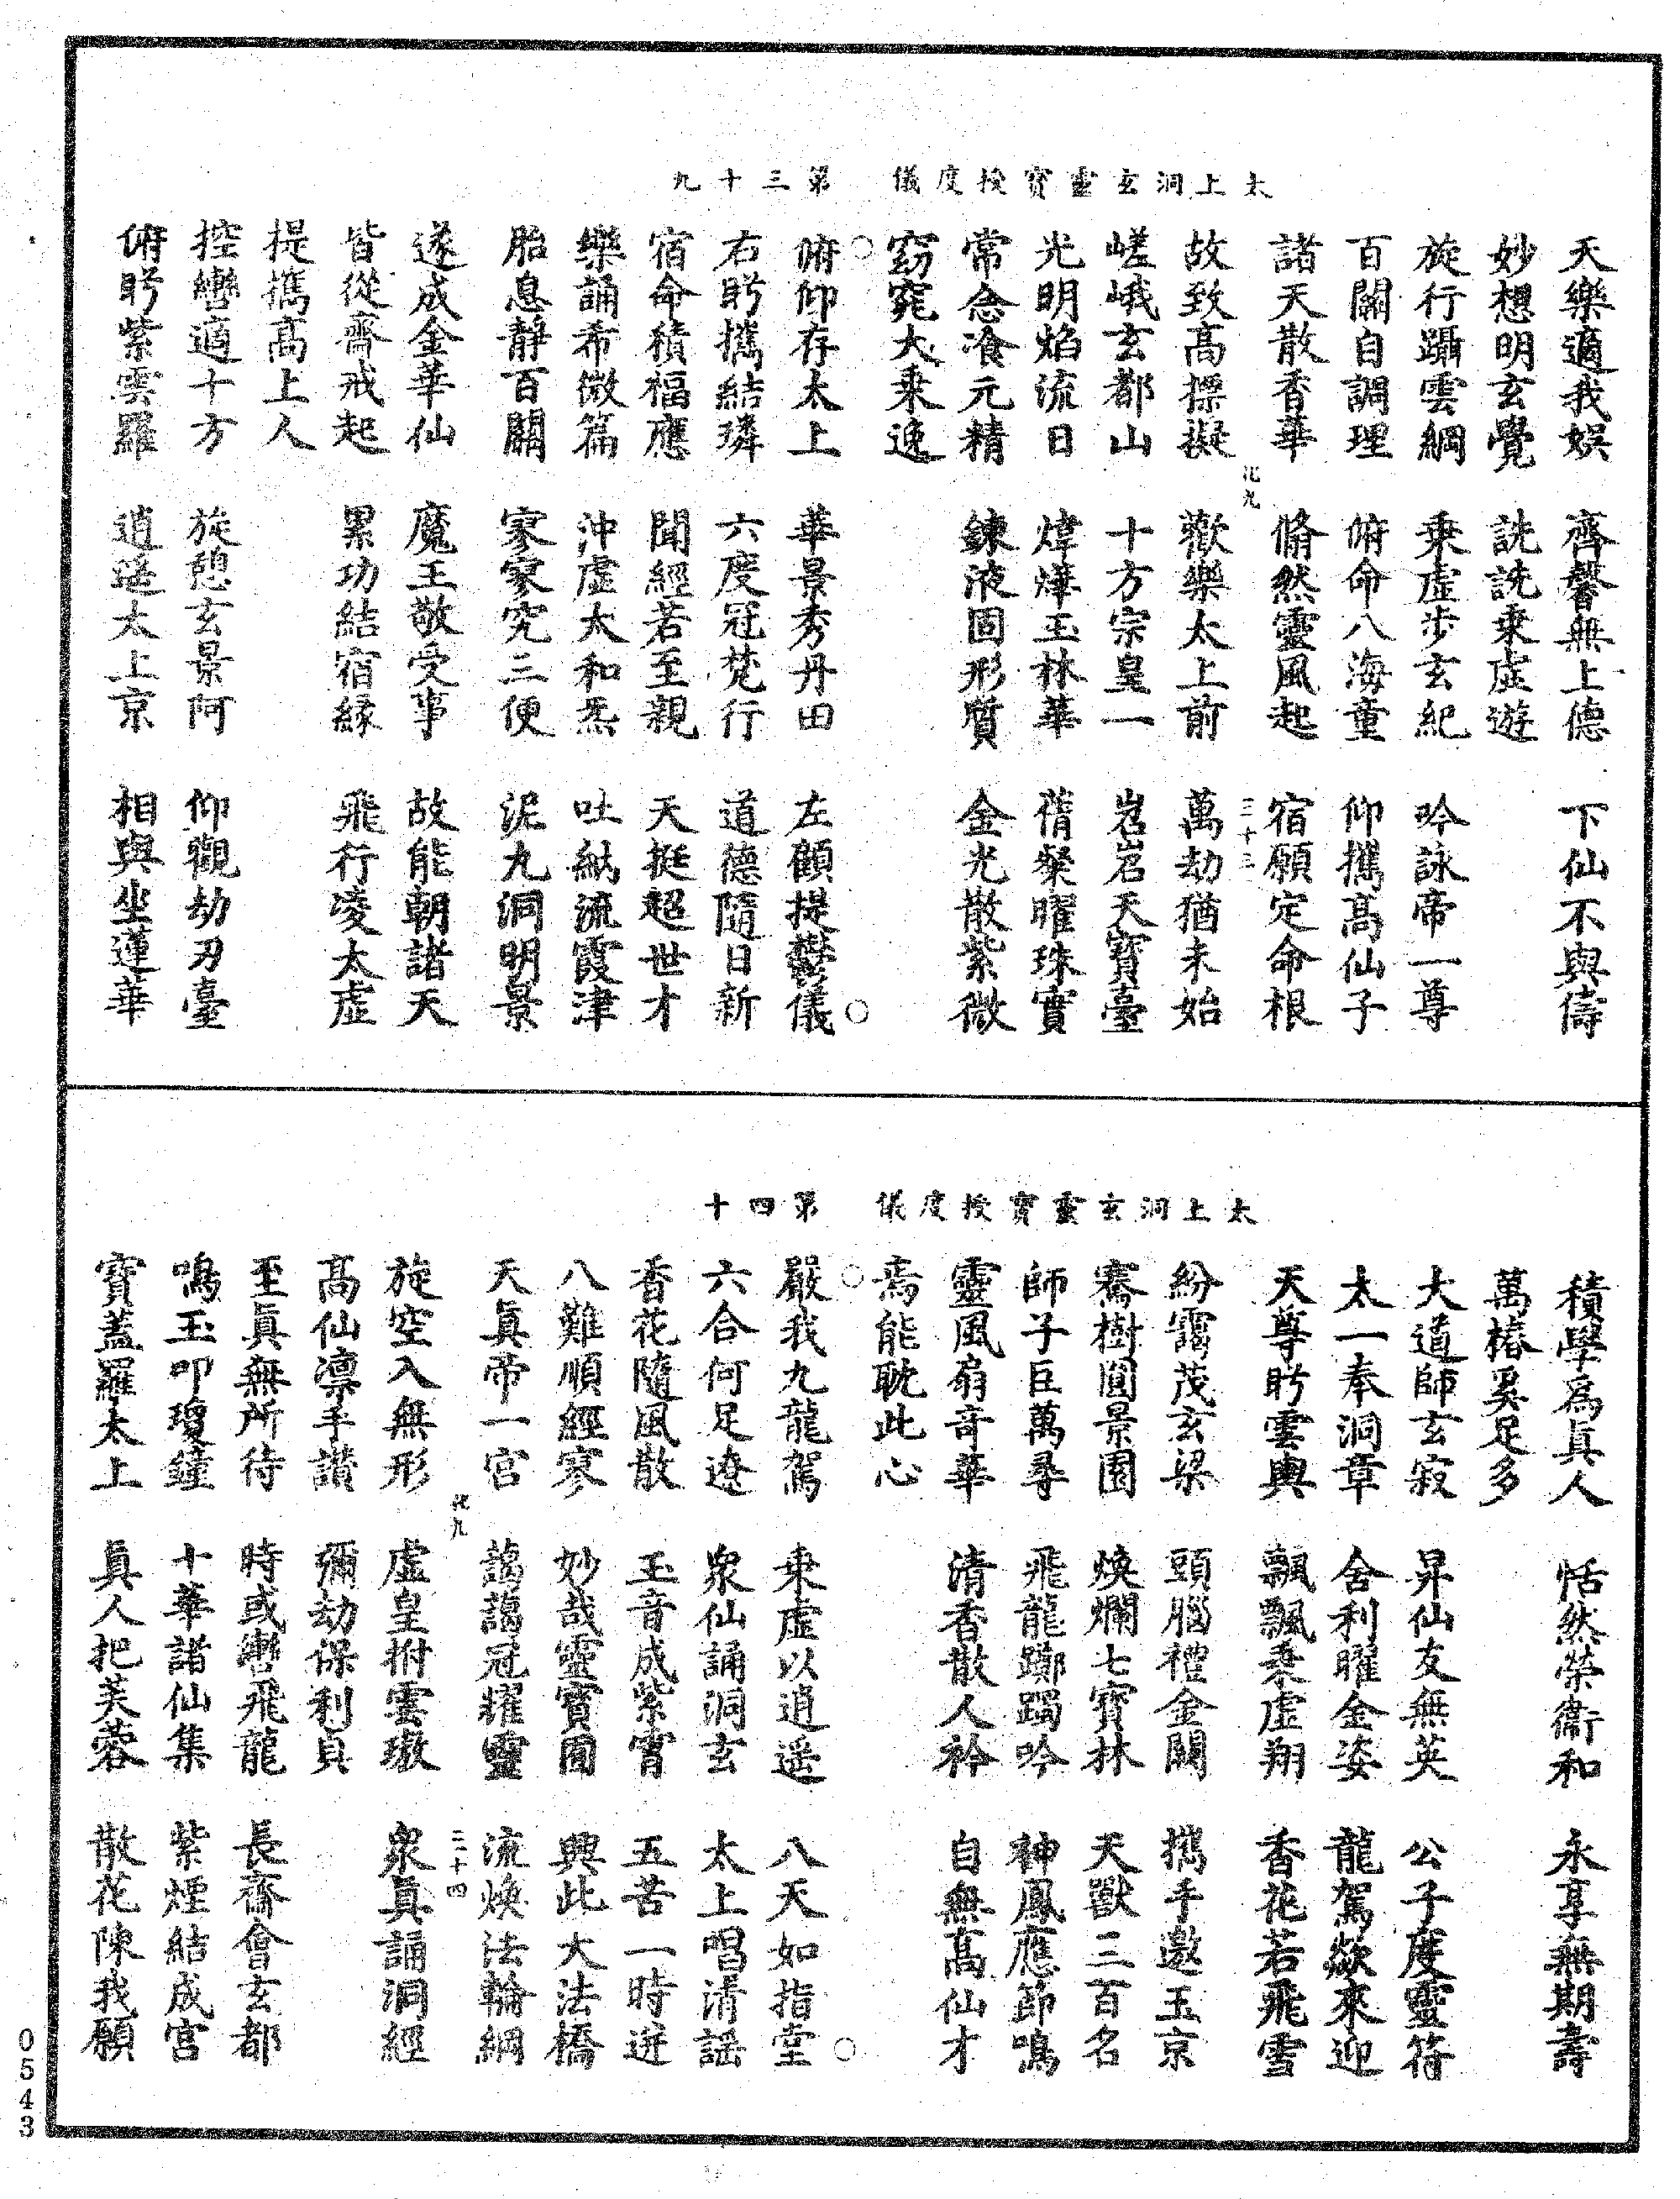 太上洞玄靈寶授度儀　第三十九
天樂適我娱　齊馨無上德　下仙不與儔
妙想明玄覺　詵詵乗虛遊
旋行躡雲綱　乗虛步玄紀　吟詠帝一尊
百關自調理　俯命八海童　仰攜高仙子
諸天散香華　翛然靈風起　宿願定命根
化九　三十三
故致高摽擬　歡樂太上前　萬劫猶未始
嵯峨玄都山　十方宗皇一　岧岧天寶臺
光明焰流日　煒燁玉林華　蒨粲曜珠實
常念飡元精　鍊液固形質　金光散紫微
窈窕大乗逸
俯仰存太上　華景秀丹田　左顧提鬱儀
右盻攜結璘　六度冠梵行　道德隨日新
宿命積福應　聞經若至親　天挺超世才
樂誦希微篇　沖虛太和炁　吐納流霞津
胎息靜百關　寥寥究三便　泥丸洞明景
遂成金華仙　魔王敬受事　故能朝諸天
皆從齋戒起　累功結宿緣　飛行凌太虛
提攜高上人
控轡適十方　旋憩玄景阿　仰觀劫刃臺
俯盻紫雲羅　逍遥太上京　相與坐蓮華
太上洞玄靈寶授度儀　第四十
積學爲真人　恬然榮衞和　永享無期壽
萬椿奚足多
大道師玄寂　昇仙友無英　公子度靈符
太一奉洞章　舍利曜金姿　龍駕欻來迎
天尊盻雲輿　飄飄乗虛翔　香花若飛雪
紛靄茂玄梁　頭腦禮金闕　攜手邀玉京
騫樹圓景園　煥爛七寶林　天獸三百名
師子巨萬尋　飛龍躑躅吟　神鳳應節鳴
靈風扇竒華　清香散人衿　自無高仙才
焉能耽此心
嚴我九龍駕　乗虛以逍遥　八天如指堂
六合何足遼　衆仙誦洞玄　太上唱清謡
香花隨風散　玉音成紫霄　五苦一時迸
八難順經寥　妙哉靈寶囿　興此大法橋
天眞帝一宫　藹藹冠耀靈　流煥法輪綱
化九　三十四
旋空入無形　虛皇拊雲璈　衆眞誦洞經
高仙凛手讃　彌劫保利貞
至眞無所待　時或轡飛龍　長齋會玄都
鳴玉叩瓊鐘　十華諸仙集　紫煙結成宫
寳蓋羅太上　眞人把芙蓉　散花陳我願
0543